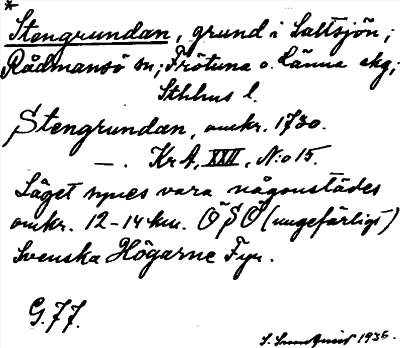 *
Stengrundan, grund i Saltsjön;
Rådmansö sn; Frötuna o. Länna skg;
Sthlms l.
Stengrundan, omkr. 1730.
—. KrA, XXII, N:o 15.
Läget synes vara någonstädes
omkr. 12-14 km. ÖSÖ (ungefärligt)
Svenska Högarne Fyr.
G. 77.
1935.